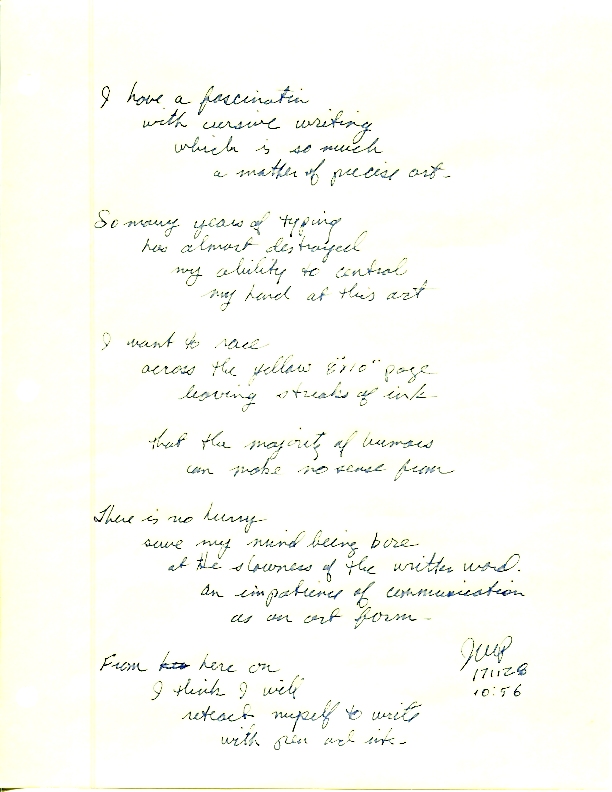 I have a fascinatin
with cursive writing
which is so much
a matter of precise art.
So many years of typing
has almost destroyed
my ability to control
my hand at this art
I want to race
across the yellow 8"x10" page
leaving streaks of ink
that the majority of humans
can make no sense from
There is no hurry
save my mind being bore
at the slowness of the written word.
an impatience of communication
as an art form.
From here on
I think I will
reteach myself to write
with pen and ink.
JWP
171128
10:56